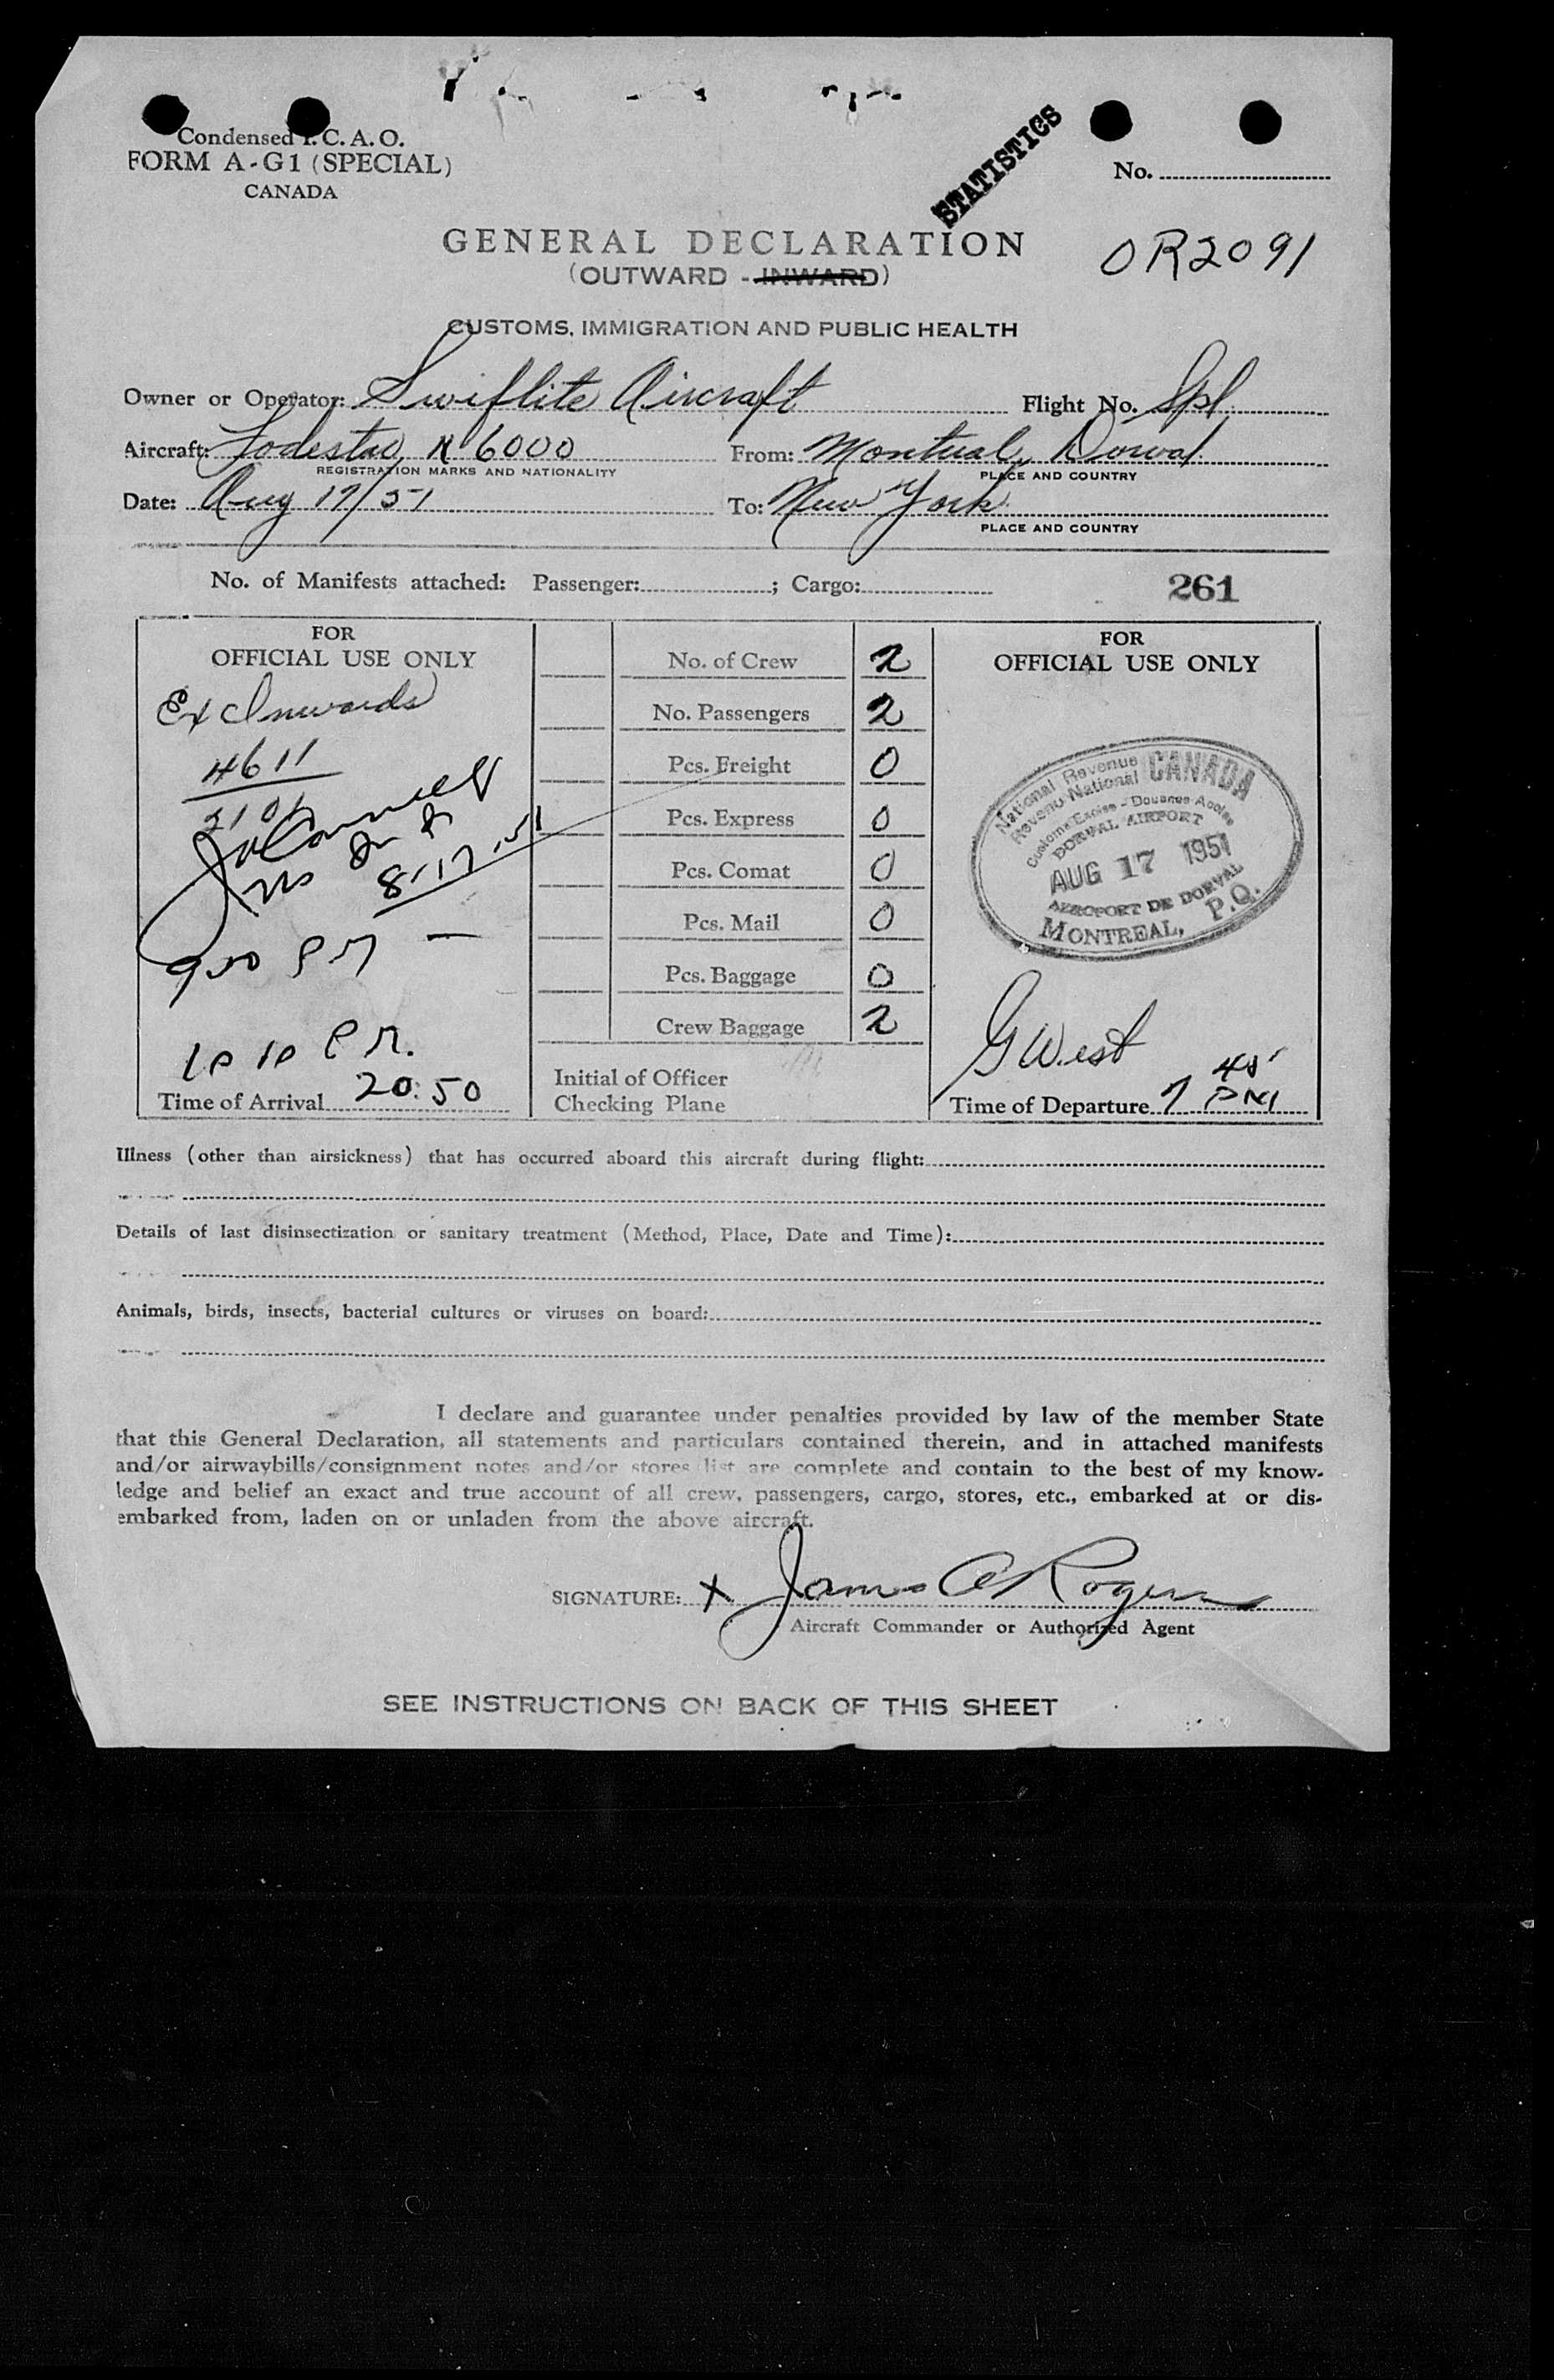 Condensed I. C. A. O.
FORM A-G1 (SPECIAL)
CANADA
STATISTICS
No.
GENERAL DECLARATION
(OUTWARD - INWARD)
OR2091
CUSTOMS, IMMIGRATION AND PUBLIC HEALTH
Owner or Operator: Swiflite Aircraft Flight No. Spl.
Aircraft: Lodestar N 6000 From: Montreal, Dorval
REGISTRATION MARKS AND NATIONALITY PLACE AND COUNTRY
Date: Aug 17/51 To: New York
PLACE AND COUNTRY
No. of Manifests attached: Passenger: ; Cargo:
261
FOR
OFFICIAL USE ONLY
Ex Inwards
4611
8-17-51
9:00 PM
10 10 P M.
Time of Arrival 20:50
No. of Crew 2
No. Passengers 2
Pcs. Freight 0
Pcs. Express 0
Pcs. Comat 0
Pcs. Mail 0
Pcs. Baggage 0
Crew Baggage 2
Initial of Officer
Checking Plane
FOR
OFFICIAL USE ONLY
National Revenue CANADA
Revenu National
Customs-Excise - Douanes-Accise
DORVAL AIRPORT
AUG 17 1951
AEROPORT DE DORVAL
MONTREAL, P.Q.
G West
Time of Departure 7 45 PM
Illness (other than airsickness) that has occurred aboard this aircraft during flight:
Details of last disinsectization or sanitary treatment (Method, Place, Date and Time):
Animals, birds, insects, bacterial cultures or viruses on board:
I declare and guarantee under penalties provided by law of the member State
that this General Declaration, all statements and particulars contained therein, and in attached manifests
and/or airwaybills/consignment notes and/or stores list are complete and contain to the best of my know-
ledge and belief an exact and true account of all crew, passengers, cargo, stores, etc., embarked at or dis-
embarked from, laden on or unladen from the above aircraft.
SIGNATURE: X James A Rogers
Aircraft Commander or Authorized Agent
SEE INSTRUCTIONS ON BACK OF THIS SHEET